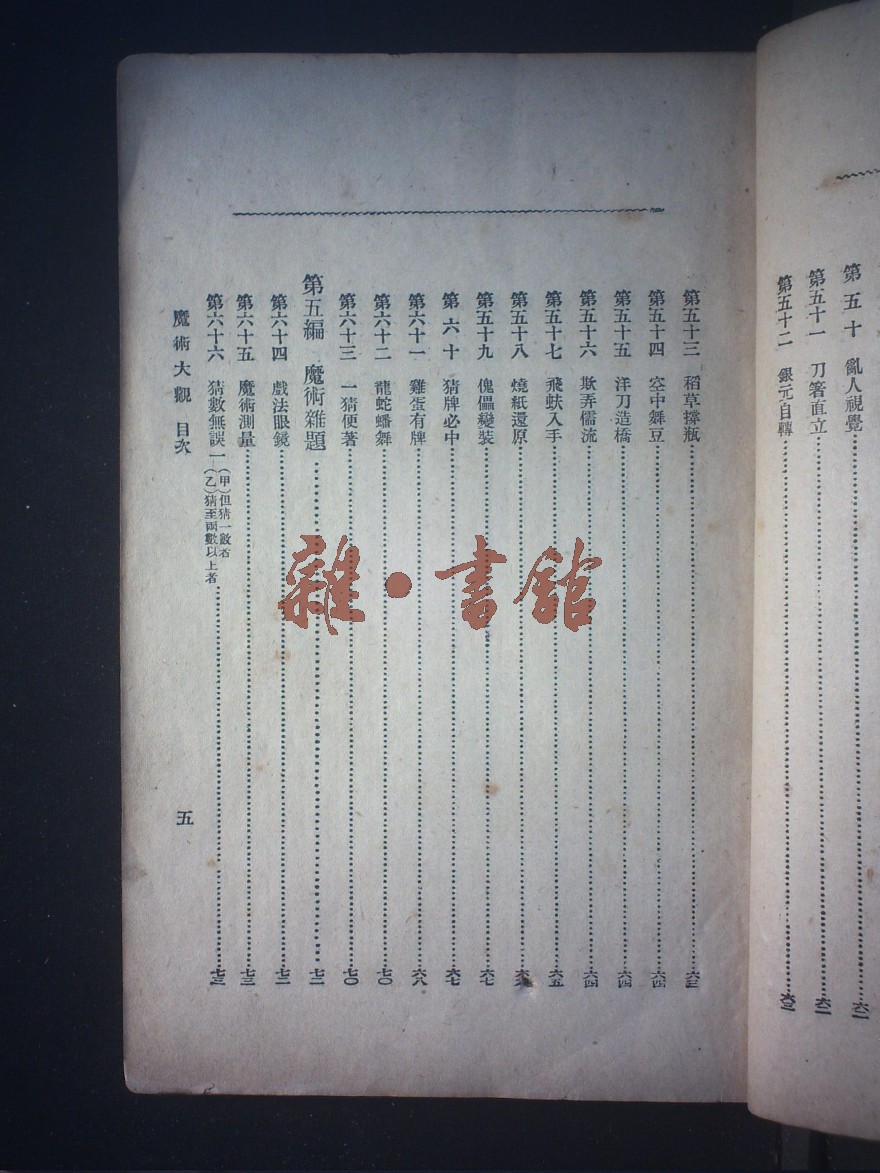 第五十　亂人視覺……六一
第五十一　刀箸直立……六二
第五十二　銀元自轉……六三
第五十三　稻草撐瓶……六三
第五十四　空中舞豆……六四
第五十五　洋刀造橋……六四
第五十六　欺弄儒流……六四
第五十七　飛蚨入手……六五
第五十八　燒紙還原……
第五十九　傀儡變裝……六七
第六十　猜牌必中……六七
第六十一　雞蛋有牌……六八
第六十二　龍蛇蟠舞……七〇
第六十三　一猜便著……七〇
第五編　魔術雜題……七二
第六十四　戲法眼鏡……七二
第六十五　魔術測量……七三
第六十六　猜數無誤
（甲）但猜一數者
（乙）猜至兩數以上者……七三
魔術大觀　目次
五
雜·書館